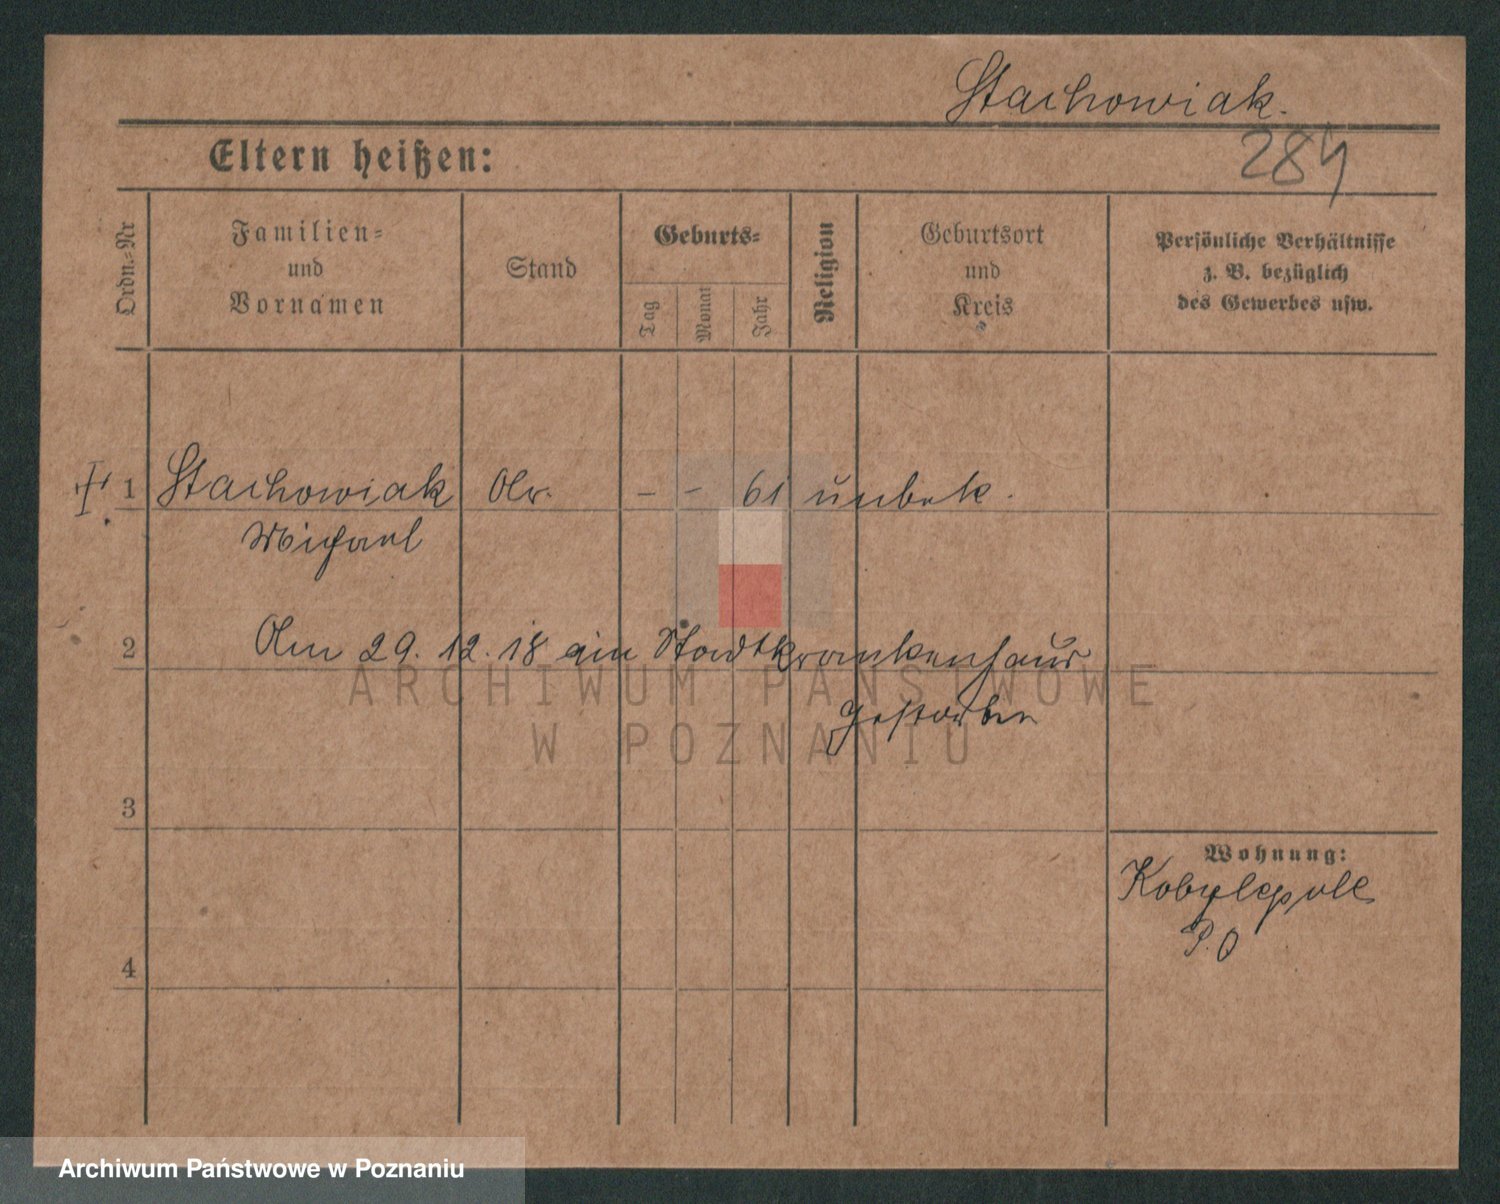 Stachowiak.
284
Eltern heißen:
Ordn.-Nr
Familien-
und
Vornamen
Stand
Geburts-
Tag
Monat
Jahr
Religion
Geburtsort
und
Kreis
Persönliche Verhältnisse
z. B. bezüglich
des Gewerbes usw.
1 Stachowiak Abr. – – 61 unbek.
Michael
2
Am 29.12.18 im Stadtkrankenhaus
gestorben
3
Wohnung:
Kobylepole
P.O
4
ARCHIWUM PAŃSTWOWE
W POZNANIU
Archiwum Państwowe w Poznaniu